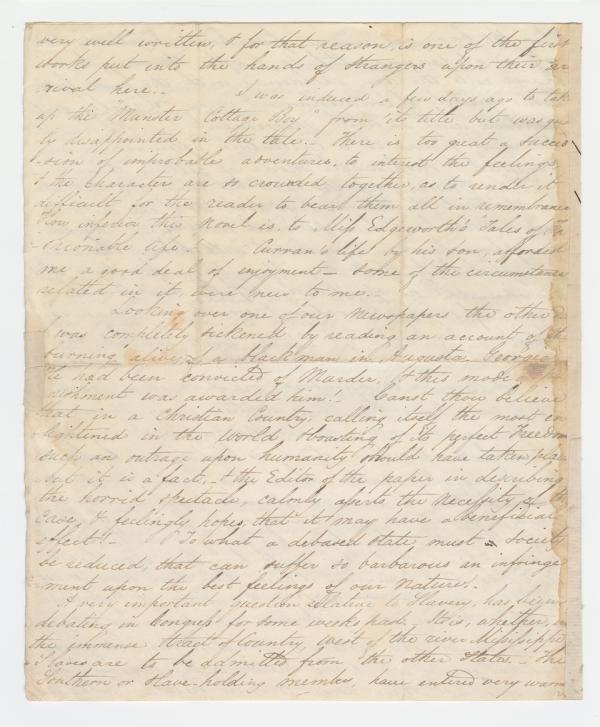 very well written, & for that reason, is one of the first
works put into the hands of strangers upon their ar
rival here. — I was induced a few days ago to tak
up the "Munster Cottage Boy" from its title but was
ly disappointed in the tale. — There is too great a succes
-sion of improbable adventures, to interest the feelings,
& the character are so crowded together, as to render it
difficult for the reader to bear them all in remembrance
How inferior this Novel is, to Miss Edgeworth's "Tales of Fa
-shionable life"! Curran's life by his son, afforded
me a good deal of enjoyment — some of the circumstance
related in it, were new to me. —
Looking over one of our Newspapers the other
I was completely sickened by reading an account of the
burning alive, of a black man in Augusta, Georgia
He had been convicted of Murder, & this mode
nishment was awarded him! Canst thou believe
that in a Christian Country, calling itself the most en
lightened in the world & boasting of its perfect Freedom
such an outrage upon humanity should have taken place
but it is a fact, — & the Editor of the paper in describing
the horrid spectacle, calmly asserts the necessity of the
case, & feelingly hopes, that it may have a beneficial
effect! — O To what a debased state must society
be reduced, that can suffer so barbarous an infringe
-ment upon the best feelings of our Nature! —
A very important question relative to Slavery, has been
debating in Congress for some weeks past. It is, whether, in
the immense tract of Country, west of the river Mississippi
Slaves are to be admitted from the other States. — The
Southern or Slave-holding members, have entered very warm